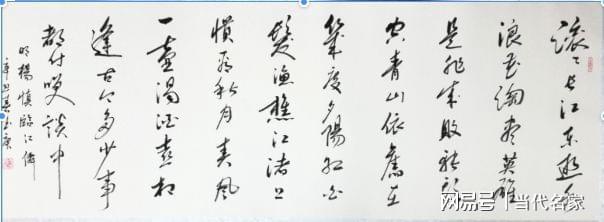 滚々长江东逝水
浪花淘尽英雄
是非成败转头
空青山依旧在
几度夕阳红白
髮渔樵江渚上
惯看秋月春风
一壶浊酒喜相
逢古今多少事
都付笑谈中
明杨慎临江僊
辛丑春
网易号|当代名家